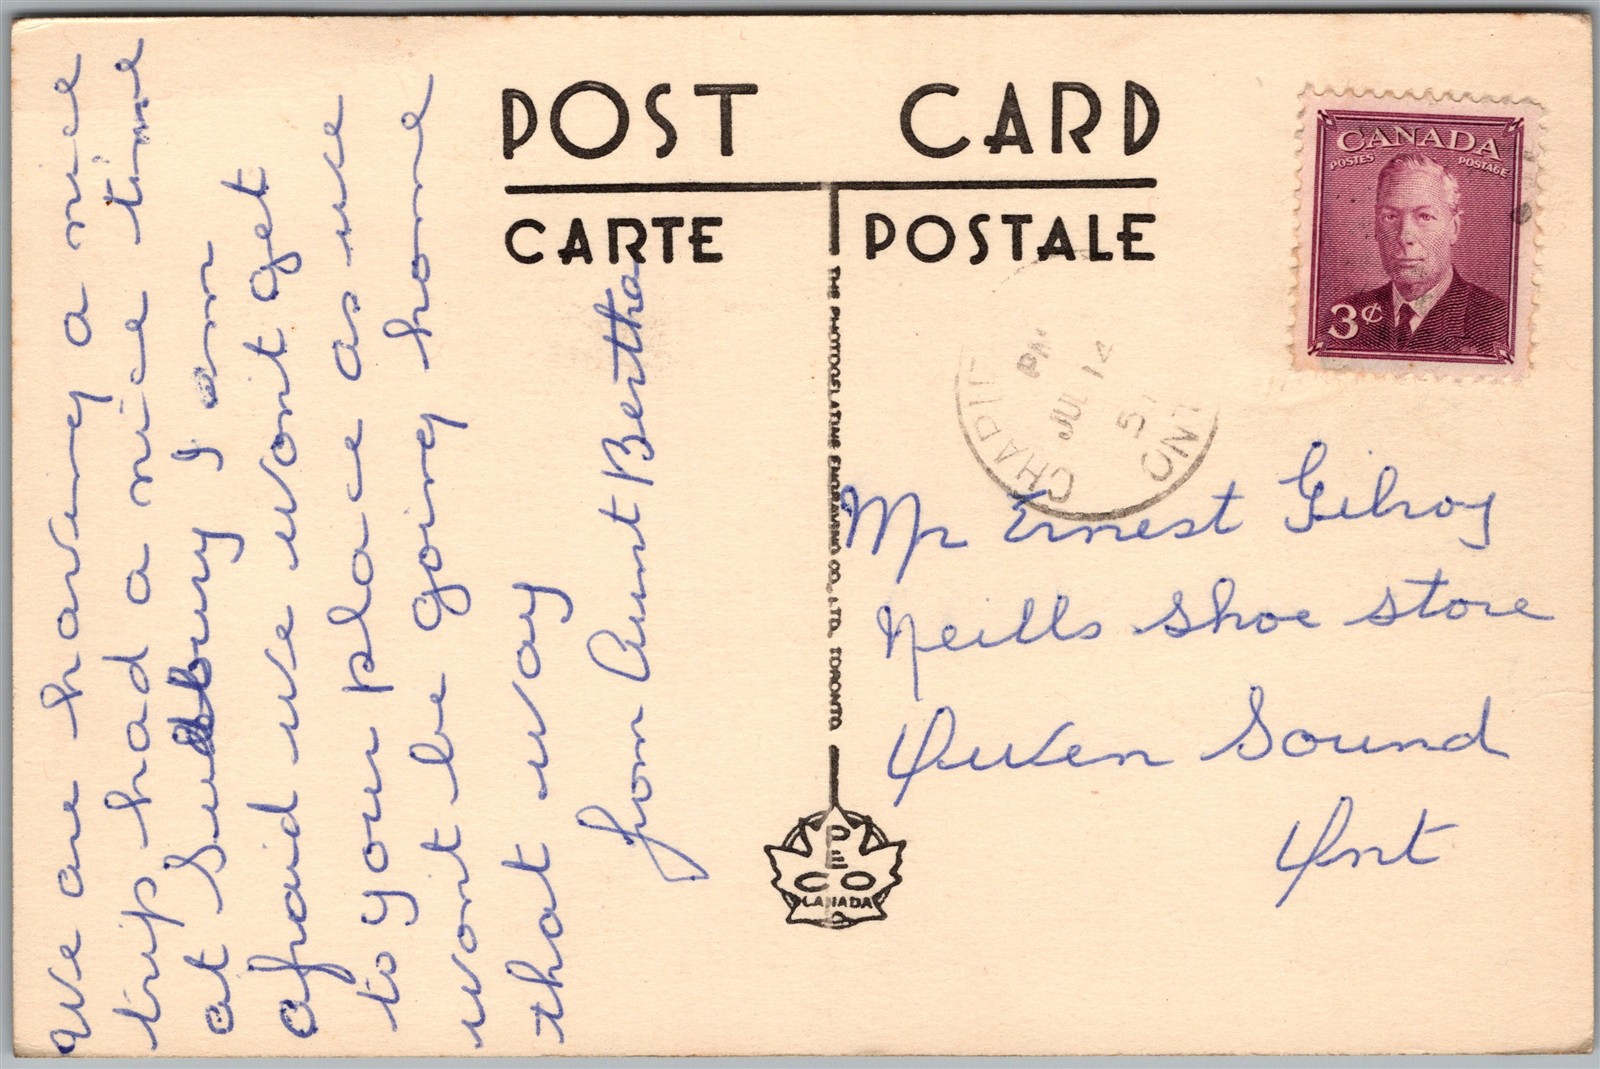 We are having a nice
trip had a nice time
at Sudbury I am
afraid we wont get
to your place as we
wont be going home
that way
from Aunt Bertha
POST CARD
CARTE POSTALE
THE PHOTOGELATINE ENGRAVING CO., LTD. TORONTO
PECO
CANADA
CANADA
POSTES POSTAGE
3¢
PM
JUL 14
51
ONT
Mr Ernest Gilroy
Neills Shoe Store
Owen Sound
Ont